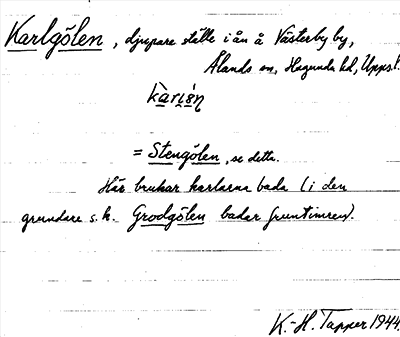 Karlgölen, djupare ställe i ån å Västerby by,
Ålands sn, Hagunda hd, Upps. l.
= Stengölen, se detta.
Här brukar karlarna bada (i den
grundare s.k. Grodgölen badar fruntimren).
K.-H. Tapper 1944.